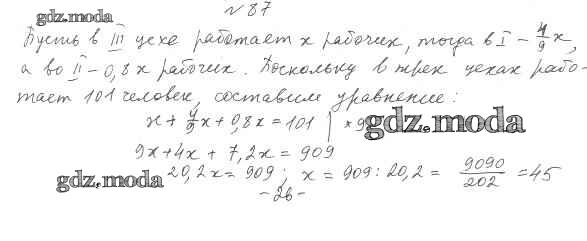 № 87
gdz.moda
Пусть в III цехе работает x рабочих, тогда в I - 4/9 x,
а во II - 0,8x рабочих. Поскольку в трех цехах рабо-
тает 101 человек, составим уравнение:
x + 4/9 x + 0,8x = 101 | × 9
gdz.moda
9x + 4x + 7,2x = 909
gdz.moda
20,2x = 909 ; x = 909 : 20,2 = 9090/202 = 45
- 26 -